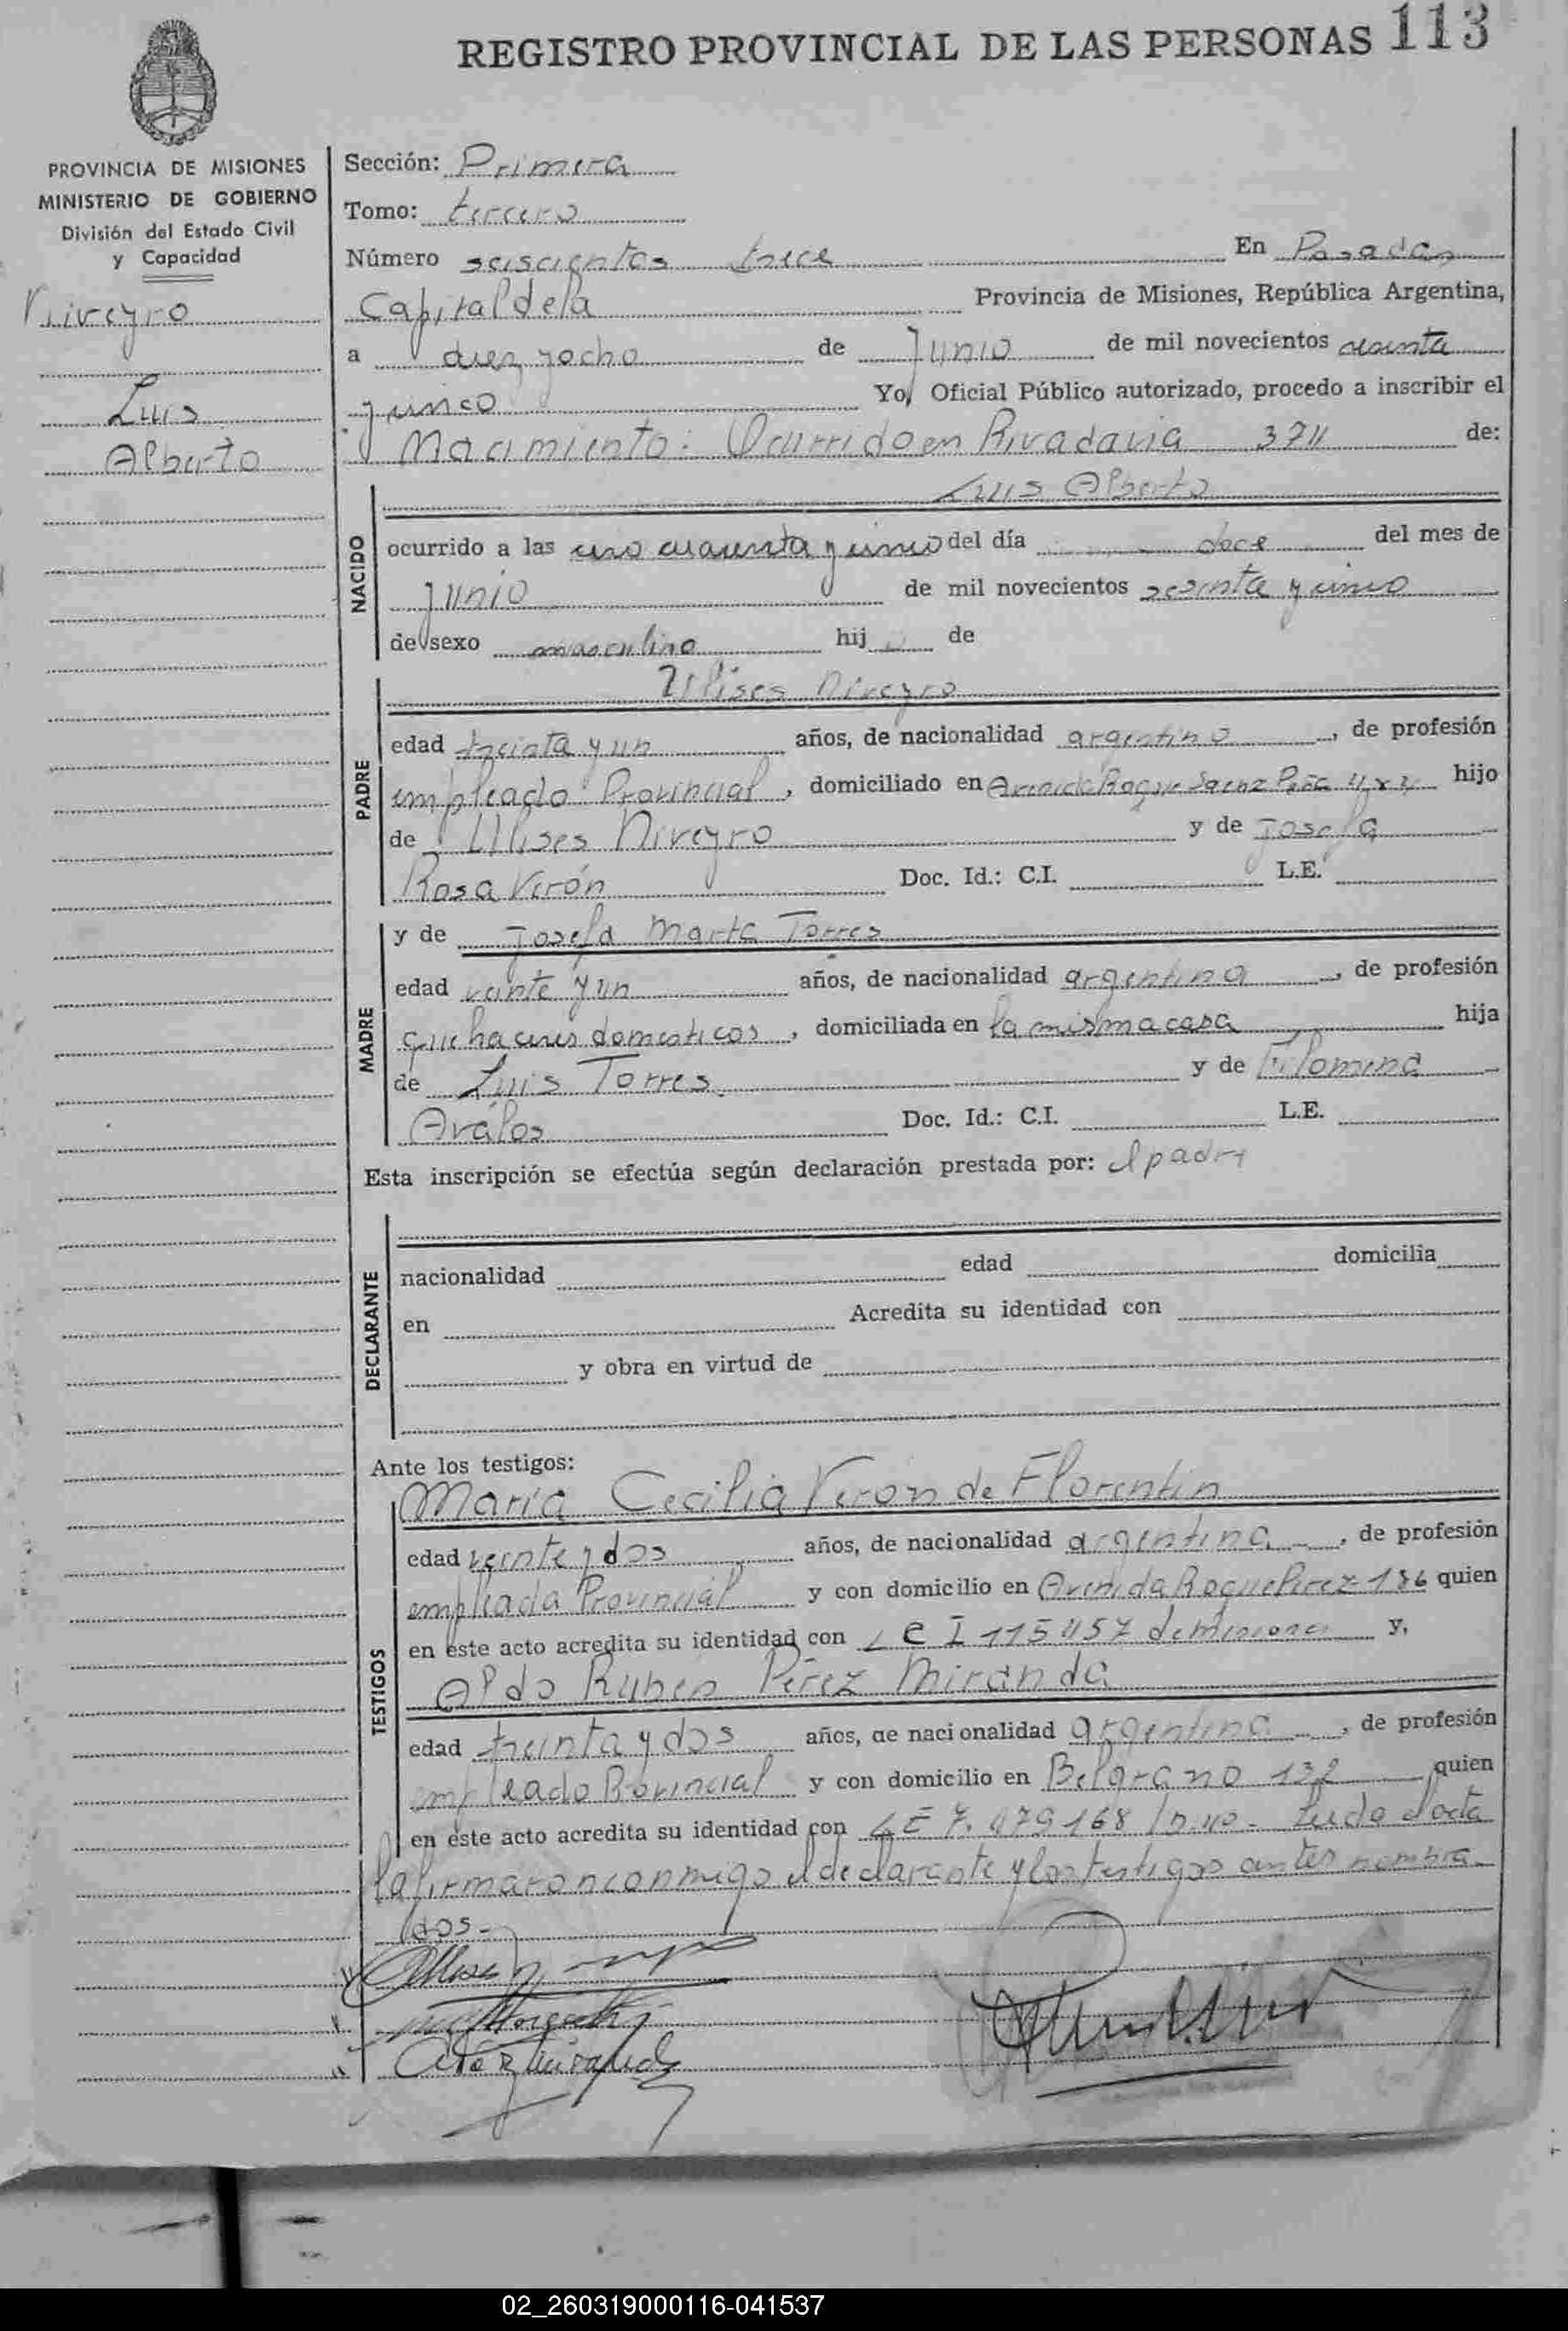 REGISTRO PROVINCIAL DE LAS PERSONAS 113
PROVINCIA DE MISIONES
MINISTERIO DE GOBIERNO
División del Estado Civil
y Capacidad
Niveyro
Luis
Alberto
Sección: Primera
Tomo: tercero
Número seiscientos trece En Posadas
Capital de la Provincia de Misiones, República Argentina,
a diez y ocho de Junio de mil novecientos sesenta
y cinco Yo, Oficial Público autorizado, procedo a inscribir el
Nacimiento: Ocurrido en Rivadavia de:
Luis Alberto
NACIDO
ocurrido a las uno cuarenta y cinco del día doce del mes de
junio de mil novecientos sesenta y cinco
de sexo masculino hijo de
PADRE
Ulises Niveyro
edad treinta y un años, de nacionalidad argentino, de profesión
empleado Provincial, domiciliado en Avenida Roque Saenz Peña hijo
de Ulises Niveyro y de Josefa
Rosa Verón Doc. Id.: C.I. L.E.
MADRE
y de Josefa Marta Torres
edad veinte y un años, de nacionalidad argentina, de profesión
quehaceres domesticos, domiciliada en la misma casa hija
de Luis Torres y de Filomena
Aválos Doc. Id.: C.I. L.E.
Esta inscripción se efectúa según declaración prestada por: el padre
DECLARANTE
nacionalidad edad domicilia
en Acredita su identidad con
y obra en virtud de
Ante los testigos:
TESTIGOS
María Cecilia Verón de Florentin
edad veinte y dos años, de nacionalidad argentina, de profesión
empleada Provincial y con domicilio en Avenida Roque Perez 186 quien
en este acto acredita su identidad con C I 115457 de Misiones y,
Aldo Ruben Pérez Miranda
edad treinta y dos años, de nacionalidad argentina, de profesión
empleado Provincial y con domicilio en Belgrano 132 quien
en este acto acredita su identidad con LE 7.479168 Leida el acta
la firmaron conmigo el declarante y los testigos antes nombra
dos.-
02_260319000116-041537